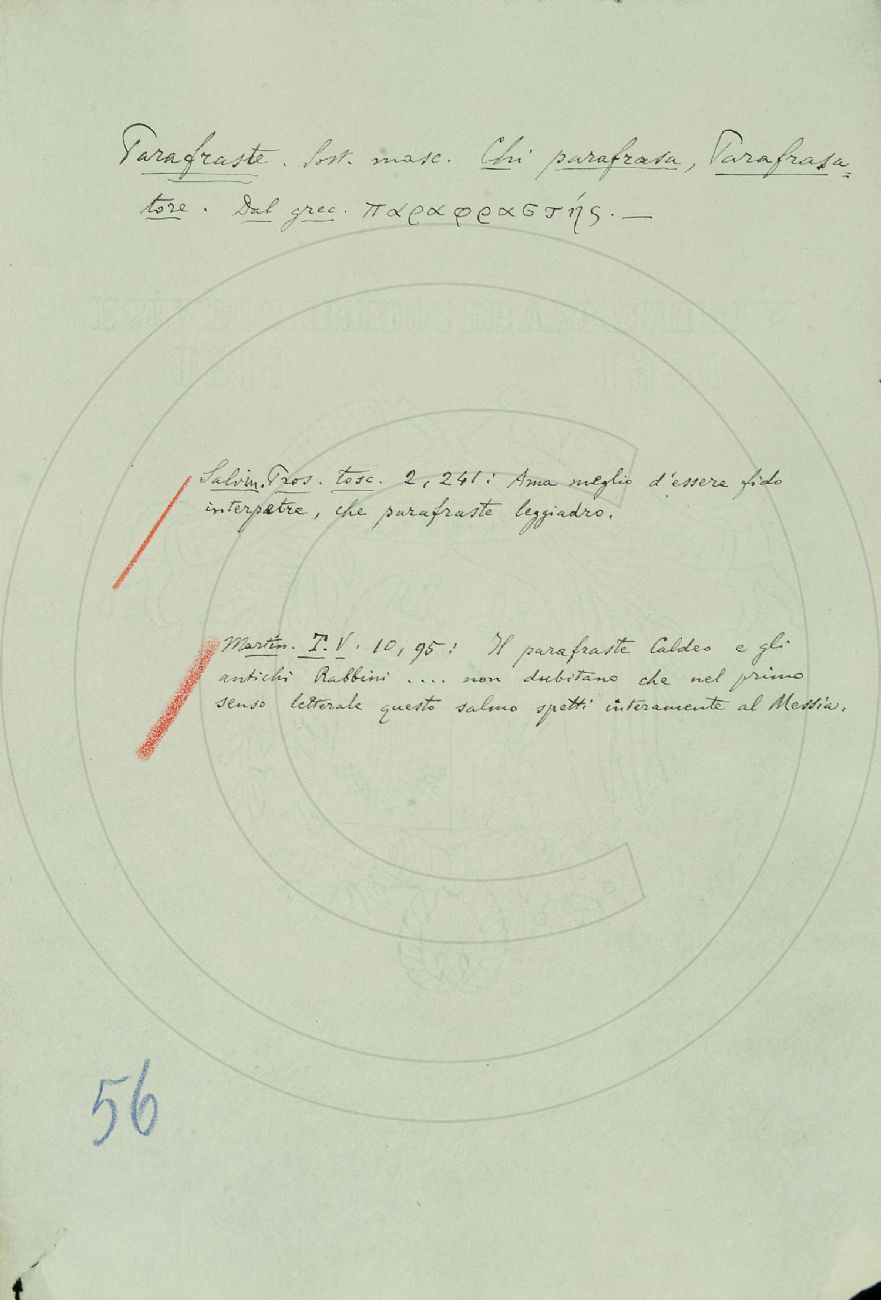 Parafraste. Sost. masc. Chi parafrasa, Parafrasa-
tore. Dal grec. παραφραστής. —
Salvin. Pros. tosc. 2, 241: Ama meglio d'essere fido
interpetre, che parafraste leggiadro.
Martin. T. V. 10, 95: Il parafraste Caldeo e gli
antichi Rabbini .... non dubitano che nel primo
senso letterale questo salmo spetti interamente al Messia.
56